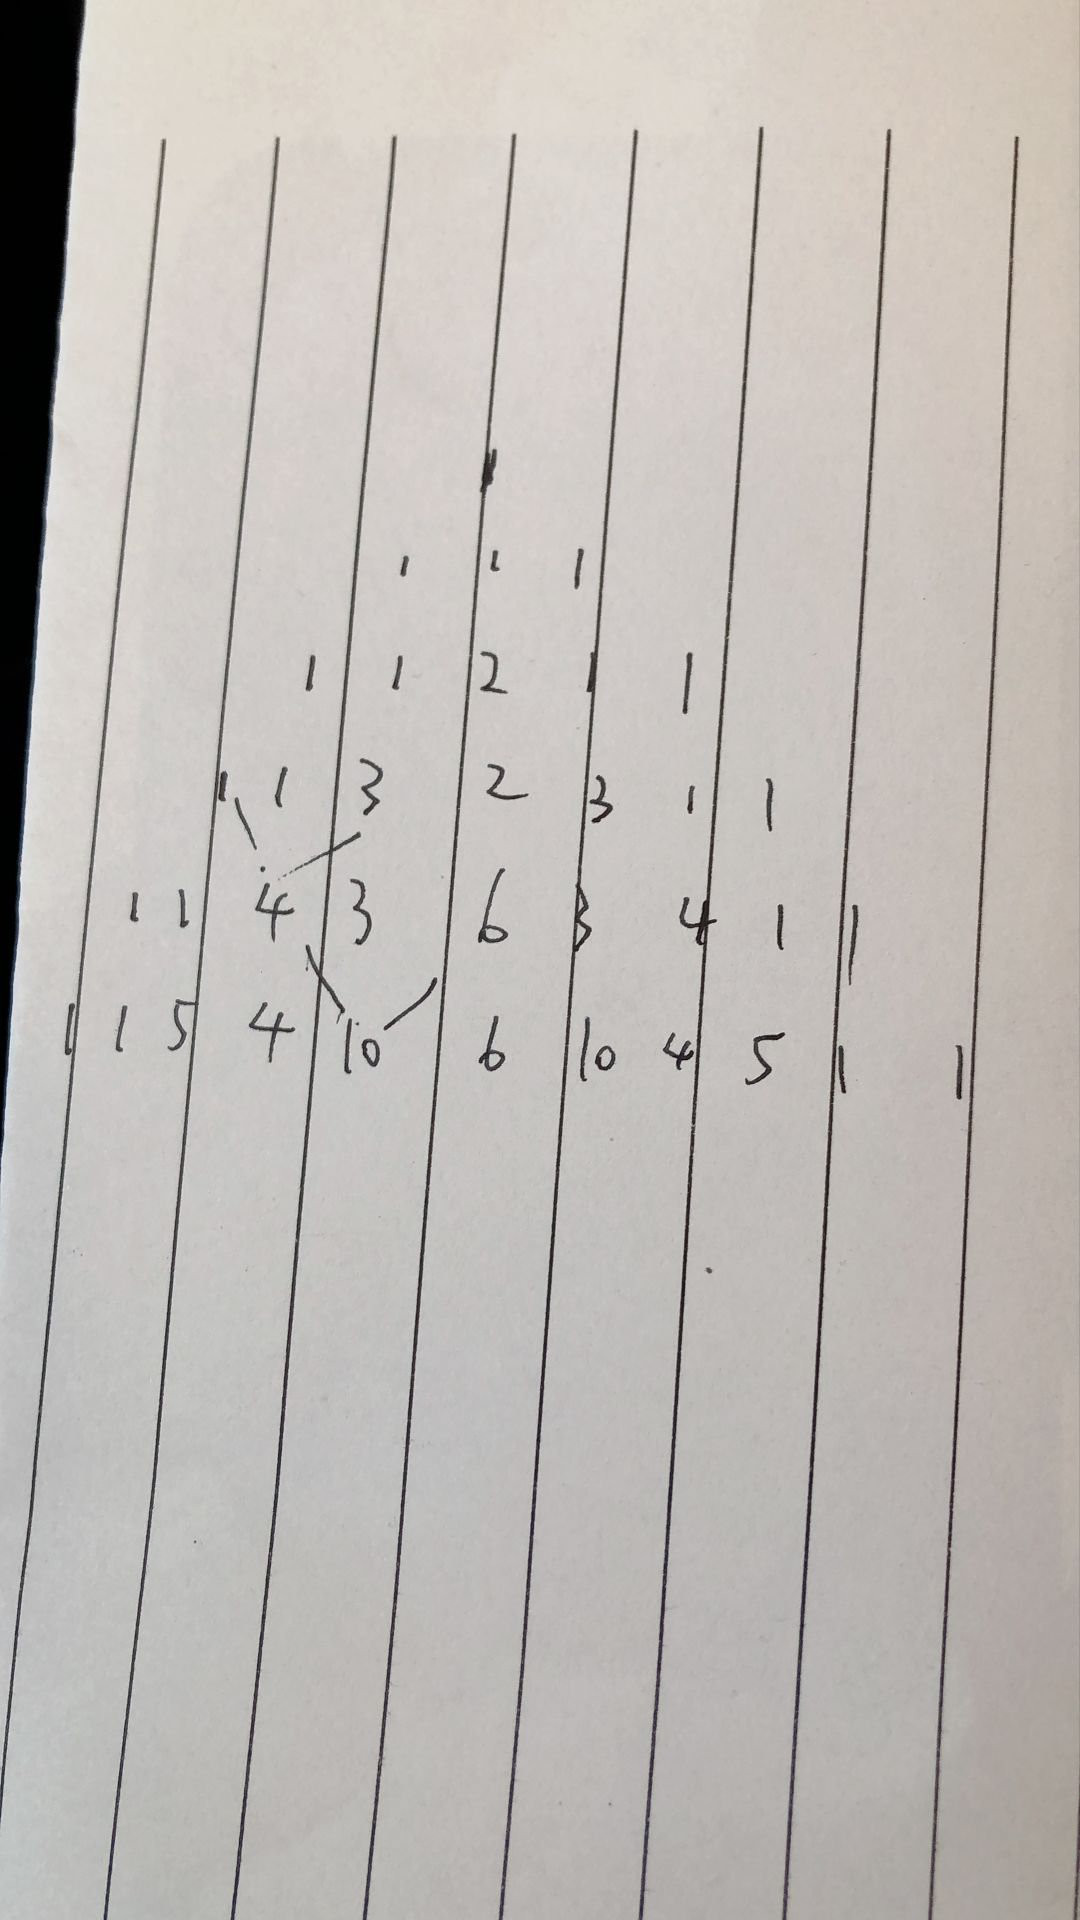 1
1 1 1
1 1 2 1 1
1 1 3 2 3 1 1
1 1 4 3 6 3 4 1 1
1 1 5 4 10 6 10 4 5 1 1